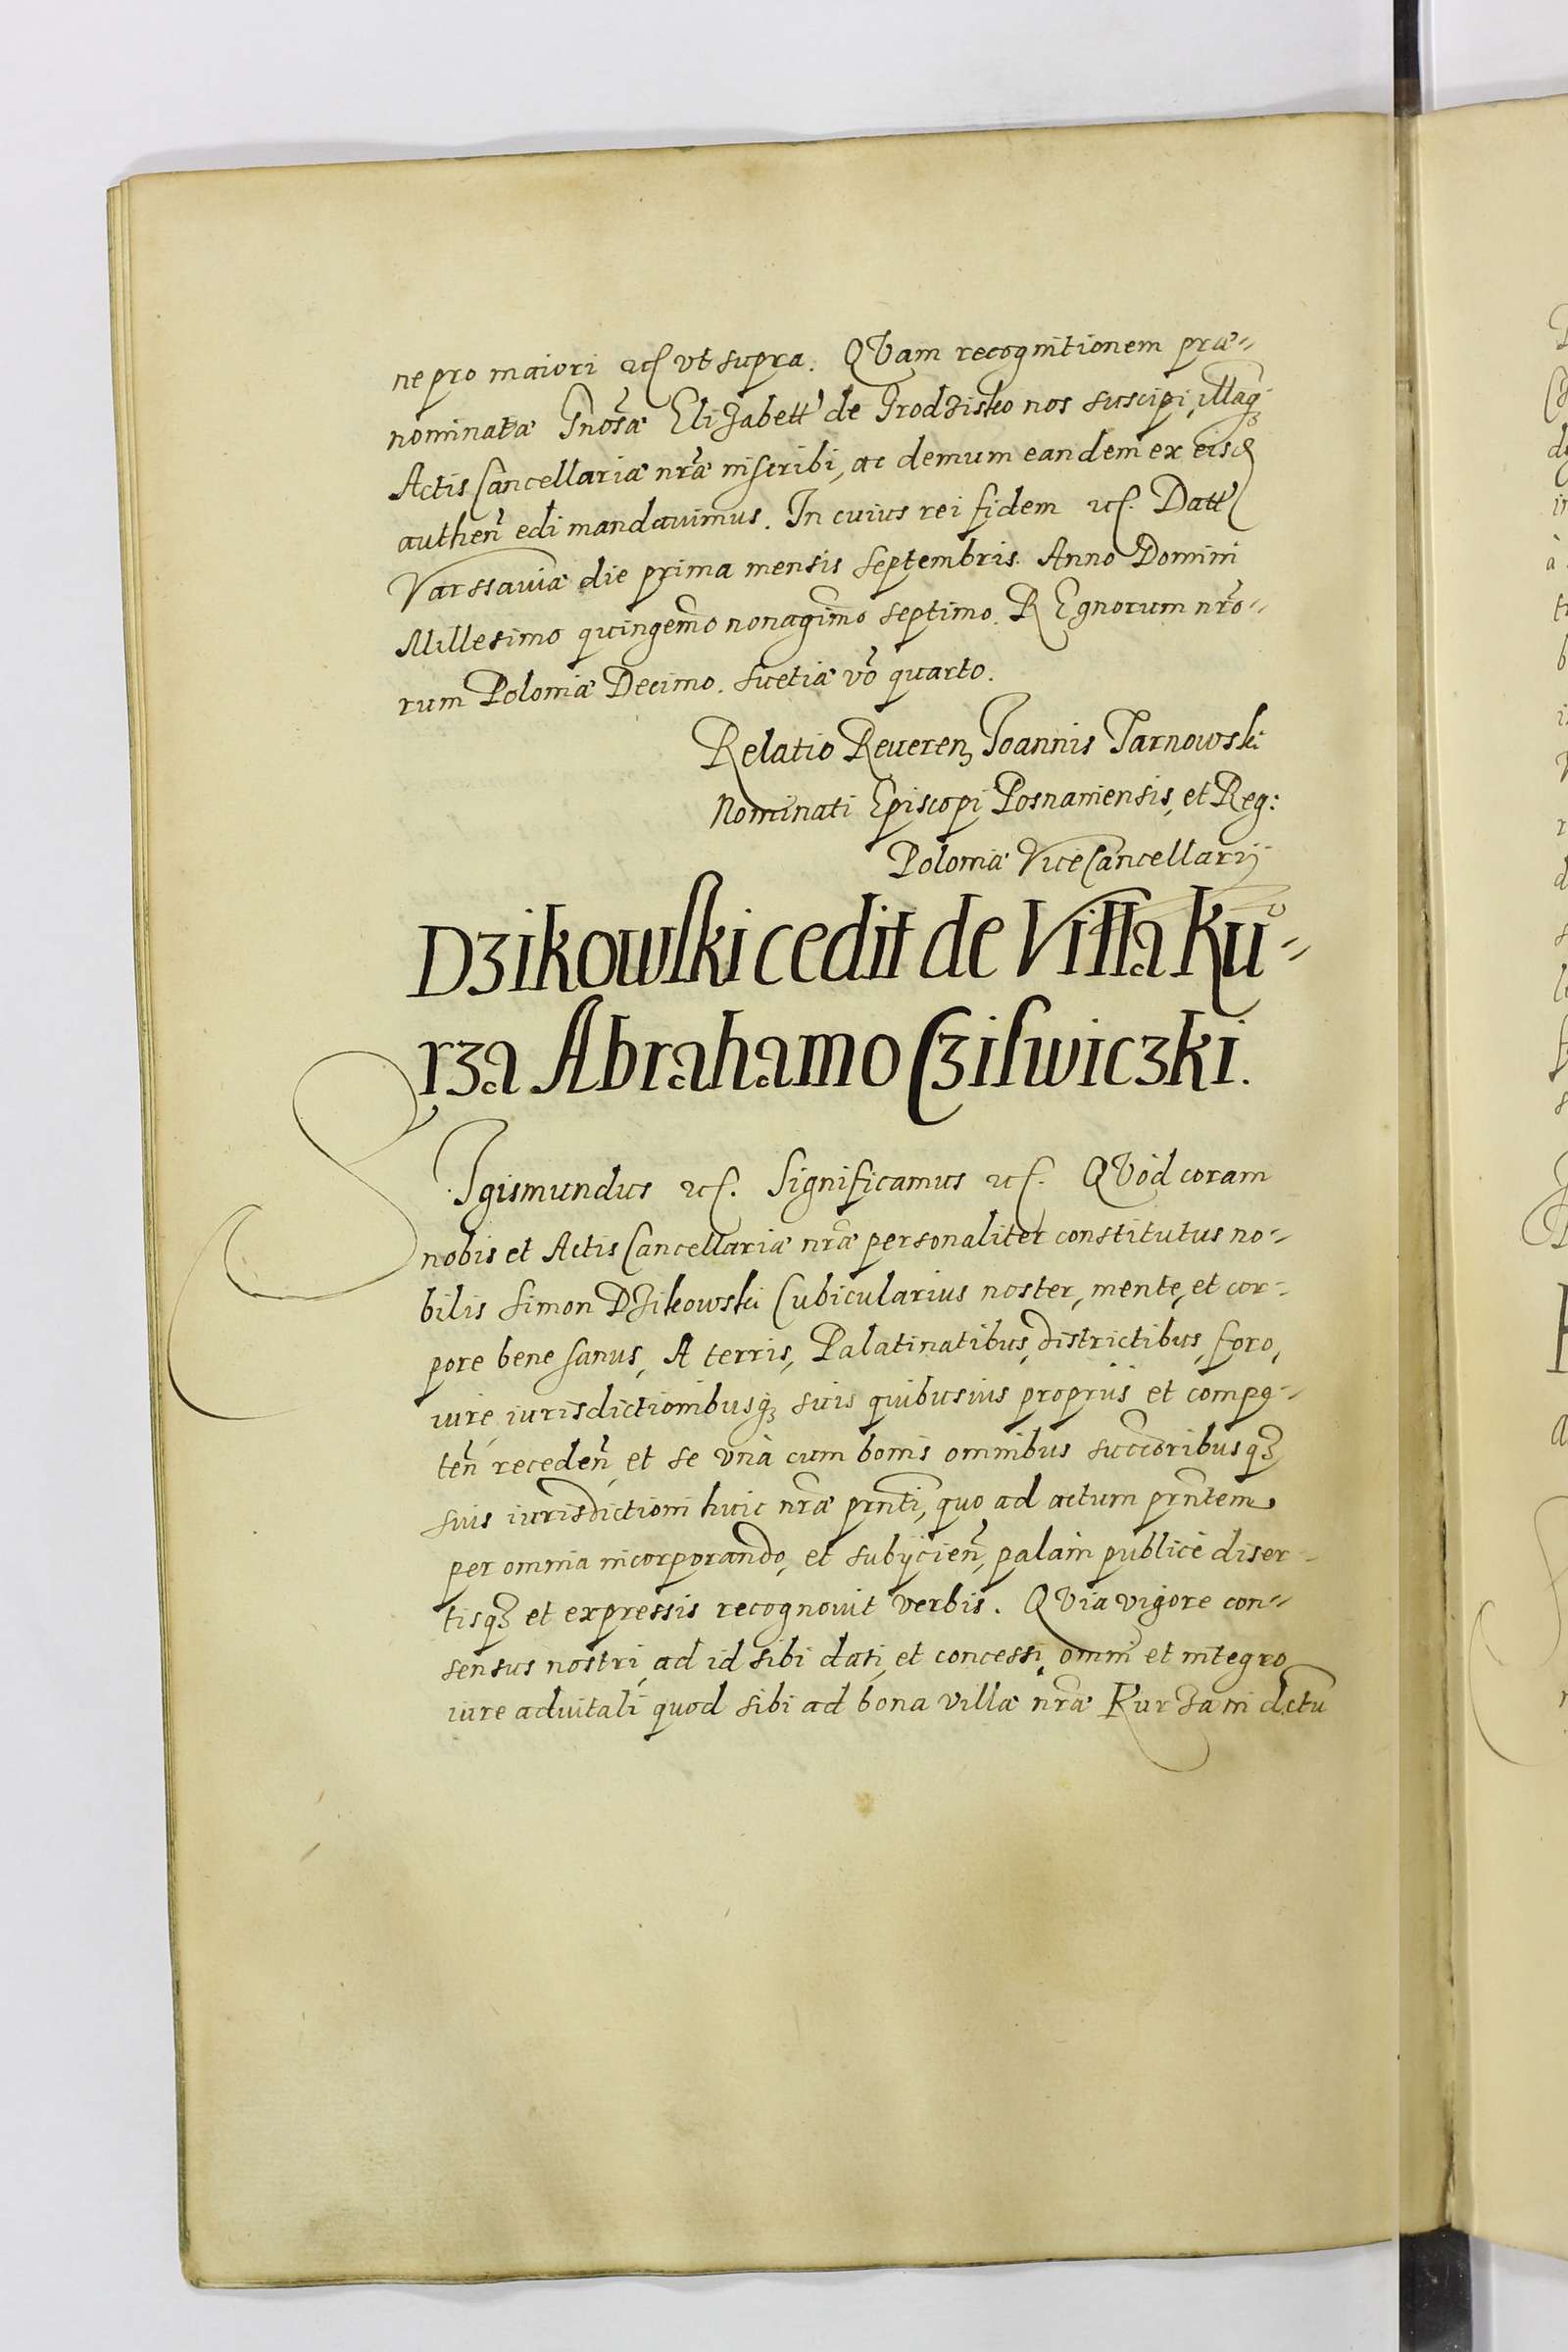 ne pro maiori etc ut supra. QVam recognitionem præ-
nominatæ Gnosæ Elizabett de Grodzisko nos suscipi, illaqꝫ
Actis Cancellariæ nr̃æ inscribi, ac demum eandem ex eisd
authen̄ edi mandauimus. In cuius rei fidem etc. Datt
Varssauiæ die prima mensis Septembris. Anno Domini
Millesimo quingem̃o nonagim̃o septimo. REgnorum nr̃o-
rum Poloniæ Decimo. Suetiæ vo᷃ quarto.
Relatio Reueren Joannis Tarnowski
Nominati Episcopi Posnaniensis, et Reg:
Poloniæ ViceCancellarij
Dzikowski cedit de Villa Ku-
rza Abrahamo Cziswiczki.
SIgismundus etc. Significamus etc. QVòd coram
nobis et Actis Cancellariæ nr̃æ personaliter constitutus no-
bilis Simon Dzikowski Cubicularius noster, mente, et cor-
pore bene sanus, A terris, Palatinatibus, districtibus, foro,
iure, iurisdictionibusqꝫ suis quibusuis proprijs et compe-
ten̄, receden̄, et se vnà cum bonis omnibus succoribusqꝫ
suis iurisdictioni huic nr̃æ prn̄ti, quo ad actum prn̄tem
per omnia incorporando, et subijcien̄, palàm publicè diser-
tisqꝫ et expressis recognouit verbis. QVia vigore con-
sensus nostri, ad id sibi dati, et concessi, omni et integro
iure aduitali quod sibi ad bona villæ nr̃æ Kurza in dictu